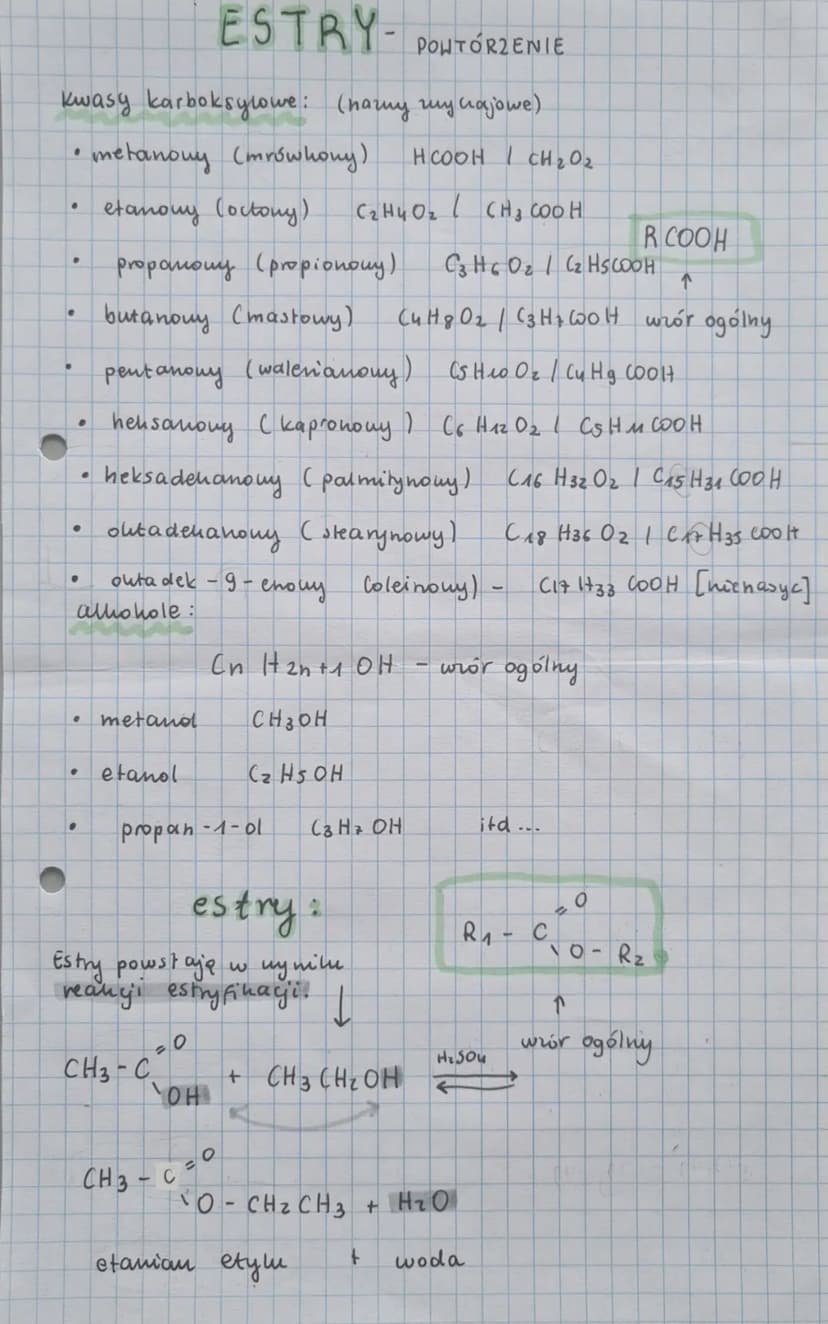 ESTRY - POWTÓRZENIE
kwasy karboksylowe: (nazwy zwyczajowe)
• metanowy (mrówkowy) HCOOH / CH2O2
• etanowy (octowy) C2H4O2 / CH3COOH
RCOOH
• propanowy (propionowy) C3H6O2 / C2H5COOH ↑
• butanowy (masłowy) C4H8O2 / C3H7COOH wzór ogólny
• pentanowy (walerianowy) C5H10O2 / C4H9COOH
• heksanowy (kapronowy) C6H12O2 / C5H11COOH
• heksadekanowy (palmitynowy) C16H32O2 / C15H31COOH
• oktadekanowy (stearynowy) C18H36O2 / C17H35COOH
• oktadek-9-enowy (oleinowy) - C17H33COOH [nienasyc]
alkohole:
CnH2n+1OH - wzór ogólny
• metanol CH3OH
• etanol C2H5OH
• propan-1-ol C3H7OH itd...
estry:
R1 - C =O \O - R2
Estry powstają w wyniku
reakcji estryfikacji. ↓
↑ wzór ogólny
CH3 - C =O \OH + CH3CH2OH H2SO4 ⇌
CH3 - C =O \O - CH2CH3 + H2O
etanian etylu + woda